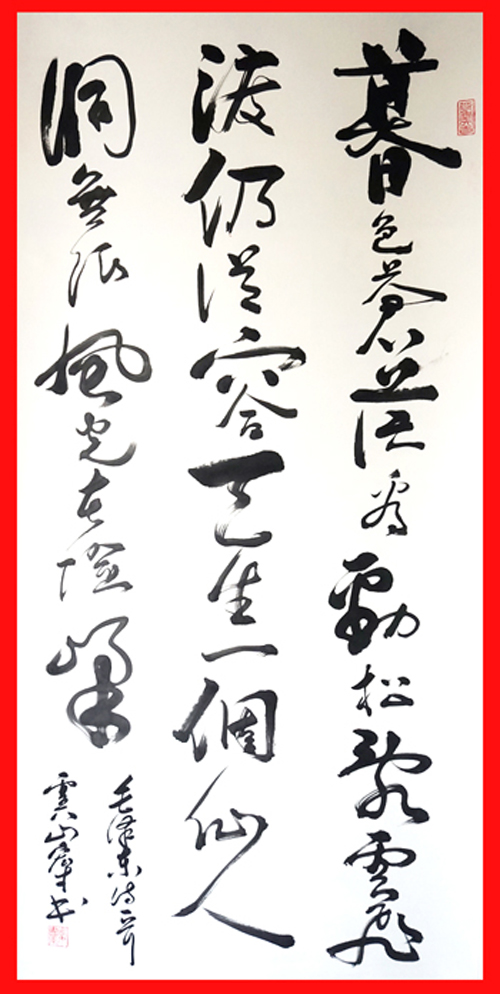 暮色蒼茫看勁松亂雲飛
渡仍從容天生一個仙人
洞無限風光在險峰
毛澤東詩一首
雲山書